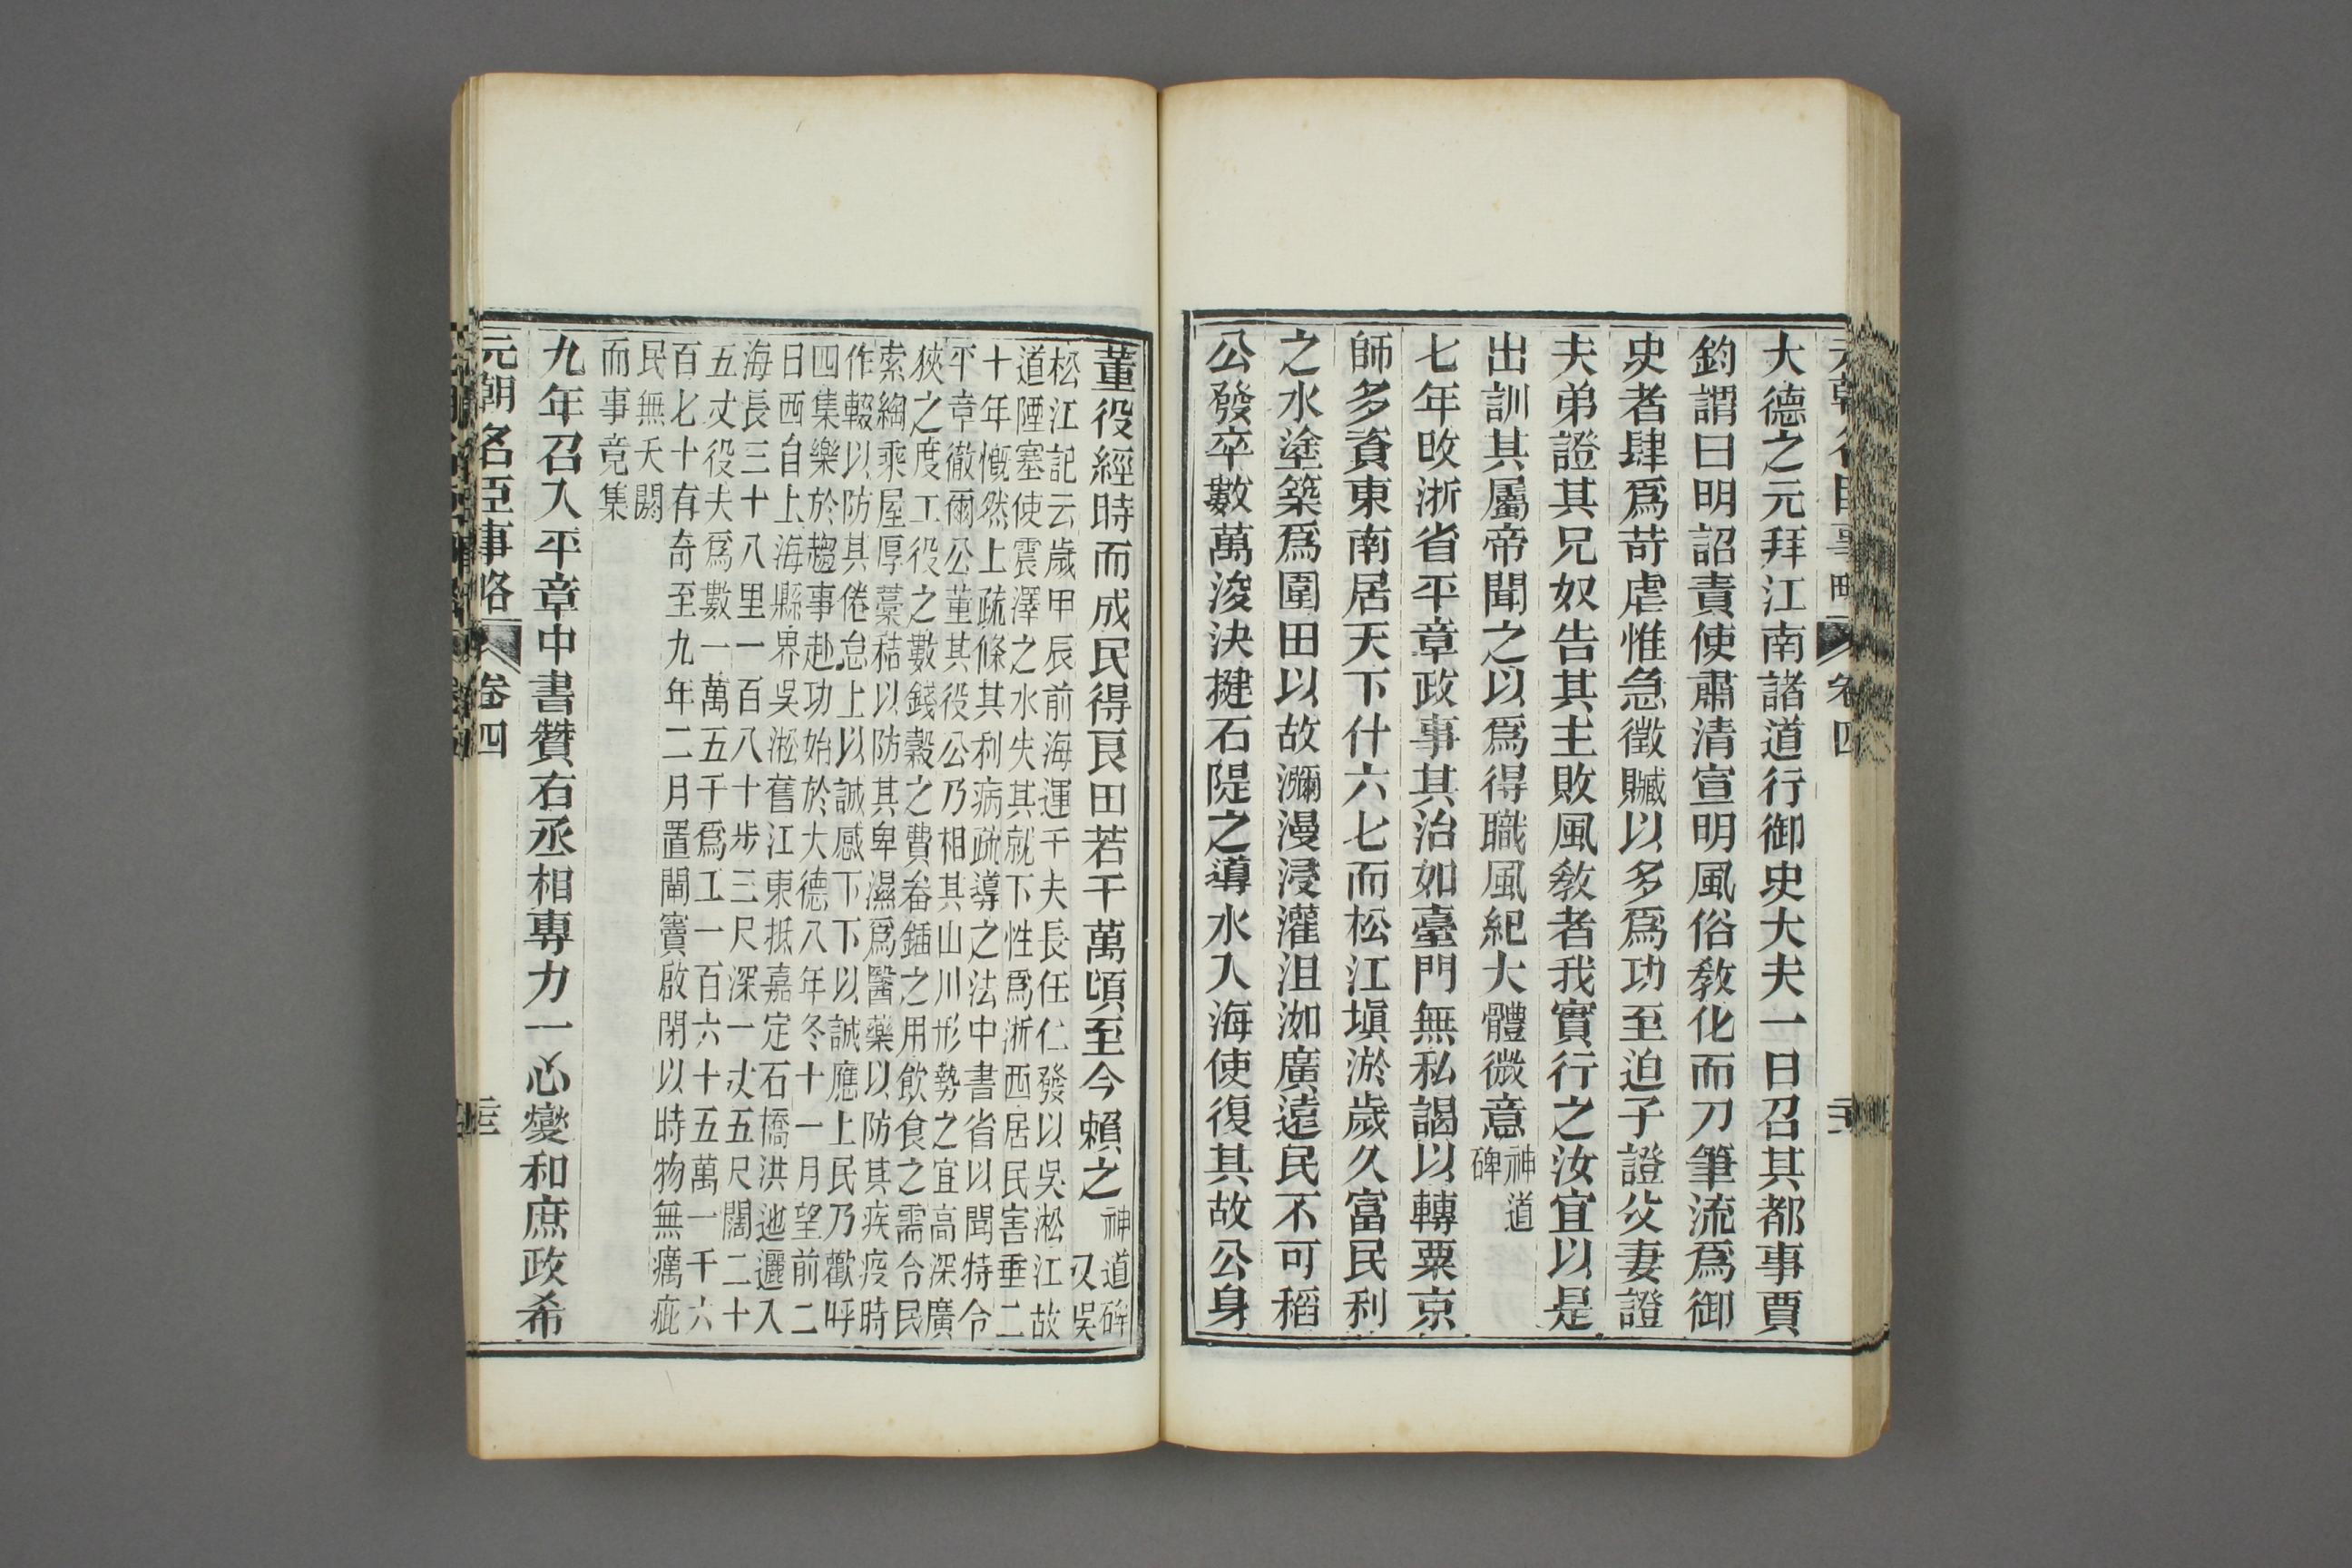 大德之元拜江南諸道行御史大夫一日召其都事賈
鈞謂曰明詔責使肅清宣明風俗敎化而刀筆流爲御
史者肆爲苛虐惟急徵贓以多爲功至迫子證父妻證
夫弟證其兄奴告其主敗風敎者我實行之汝宜以是
出訓其屬帝聞之以爲得職風紀大體微意神道
碑
七年改浙省平章政事其治如臺門無私謁以轉粟京
師多資東南居天下什六七而松江塡淤歲久富民利
之水塗築爲圍田以故瀰漫浸灌沮洳廣遠民不可稻
公發卒數萬浚決揵石隄之導水入海使復其故公身
董役經時而成民得良田若干萬頃至今賴之神道碑
又吳
松江記云歲甲辰前海運千夫長任仁發以吳淞江故
道陻塞使震澤之水失其就下性爲浙西居民害垂二
十年慨然上疏條其利病疏導之法中書省以聞特令
平章徹爾公董其役公乃相其山川形勢之宜高深廣
狹之度工役之數錢穀之費畚鍤之用飮食之需令民
索綯乘屋厚藁秸以防其卑濕爲醫藥以防其疾疫時
作輟以防其倦怠上以誠感下下以誠應上民乃歡呼
四集樂於趨事赴功始於大德八年冬十一月望前二
日西自上海縣界吳淞舊江東抵嘉定石橋洪迆邐入
海長三十八里一百八十步三尺深一丈五尺闊二十
五丈役夫爲數一萬五千爲工一百六十五萬一千六
百七十有奇至九年二月置閘竇啟閉以時物無癘疵
民無夭閼
而事竟集
九年召入平章中書贊右丞相專力一心燮和庶政希
元朝名臣事略 卷四